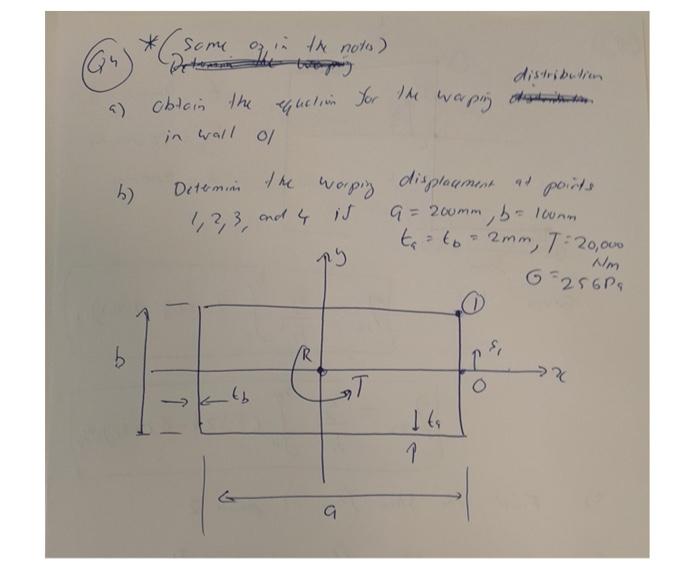 Q4 * (Same q in the notes)
Determine the warping
a) obtain the equation for the warping distribution
in wall 01
b) Determin the warping displacement at points
1, 2, 3, and 4 if a = 200mm, b = 100mm
ta = tb = 2mm, T = 20,000
Nm
G = 25GPa
y
1
b
R
S1
T
O
x
tb
ta
a